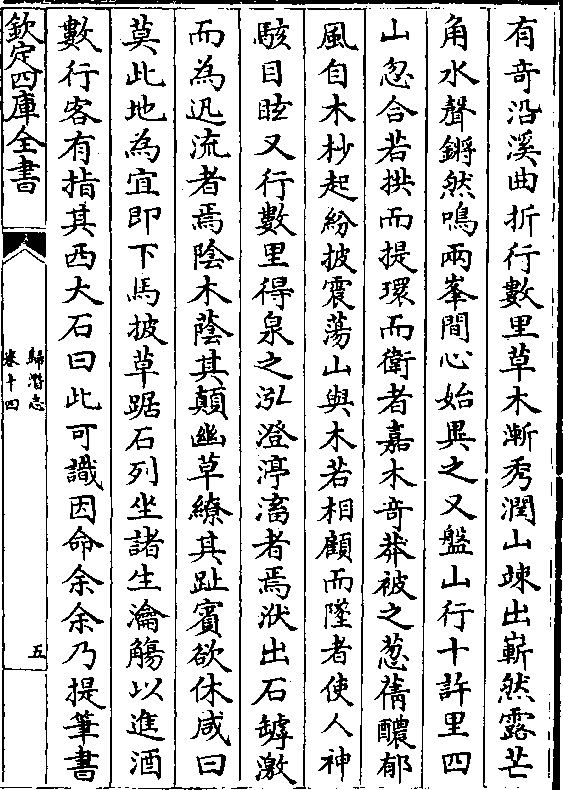 有奇沿溪曲折行數里草木漸秀潤山竦出嶄然露芒
角水聲鏘然鳴兩峯間心始異之又盤山行十許里四
山忽合若拱而提環而衛者嘉木奇莽被之葱蒨醲郁
風自木杪起紛披震蕩山與木若相顧而墜者使人神
駭目眩又行數里得泉之泓澄渟滀者焉洑出石罅激
而為迅流者焉陰木蔭其顛幽草繚其趾賓欲休咸曰
莫此地為宜即下馬披草踞石列坐諸生瀹觴以進酒
數行客有指其西大石曰此可識因命余余乃提筆書
欽定四庫全書
歸潛志
卷十四
五